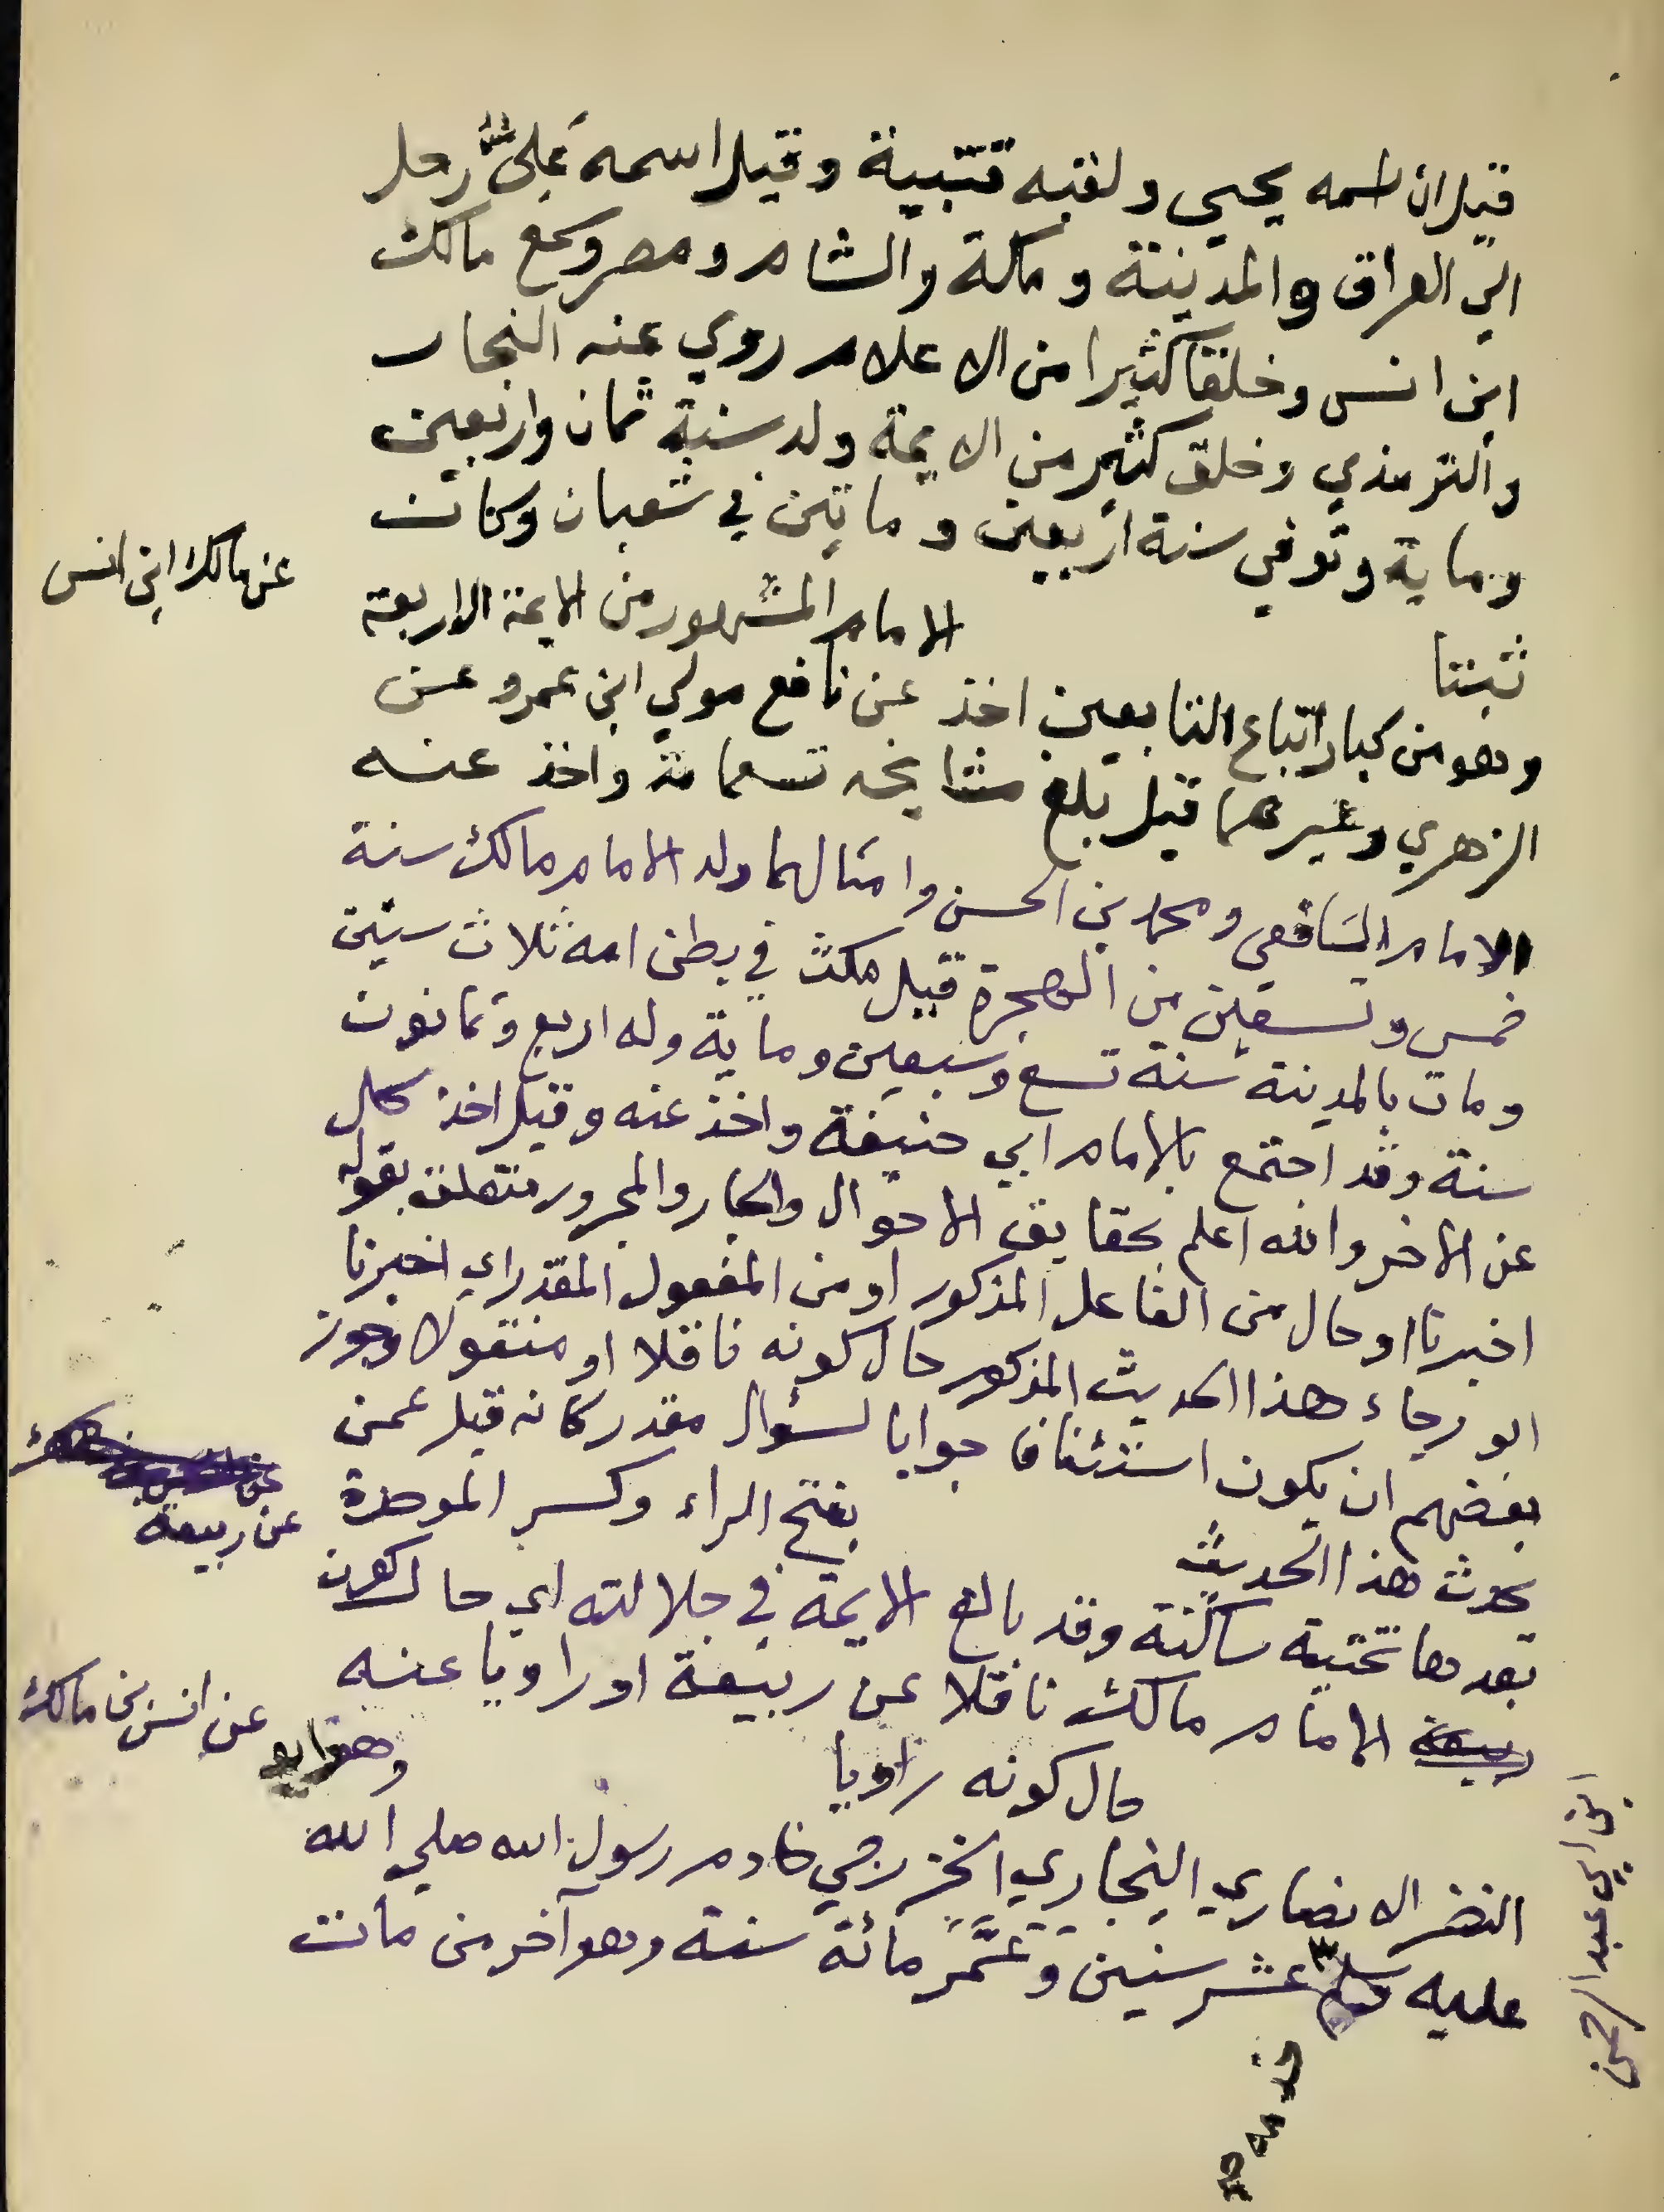 قيل ان اسمه يحيي ولقبه قتيبة وقيل اسمه عَلِيٌّ رحل
الي العراق والمدينة ومكة والشام ومصر وسمع مالك
ابن انس وخلقا كثيرا من الاعلام روي عنه البخاري
والترمذي وخلق كثير من الايمة ولد سنة ثمان واربعين
وماية وتوفي سنة اربعين وماتين في شعبان وكان
ثبتا
عن مالك ابن انس
الامام المشهور من الايمة الاربعة
وهو من كبار اتباع التابعين اخذ عن نافع مولي ابن عمر وعن
الزهري وغيرهما قيل بلغ مشايخه تسعمائة واخذ عنه
الامام الشافعي ومحمد بن الحسن وامثالهما ولد الامام مالك سنة
خمس وتسعين من الهجرة قيل مكث في بطن امه ثلاث سنين
ومات بالمدينة سنة تسع وسبعين وماية وله اربع وثمانون
سنة وقد اجتمع بالامام ابي حنيفة واخذ عنه وقيل اخذ كل
عن الاخر والله اعلم بحقايق الاحوال والجار والمجرور متعلق بقوله
اخبرنا او حال من الفاعل المذكور او من المفعول المقدر اي اخبرنا
ابو رجاء هذا الحديث المذكور حال كونه ناقلا او منقولا وجوز
بعضهم ان يكون استئنافا جوابا لسؤال مقدر كانه قيل عمن
يحدث هذا الحديث
عن ربيعة
بفتح الراء وكسر الموحدة
بعدها تحتية ساكنة وقد بالغ الايمة في جلالته اي حال كون
ربيعة الامام مالك ناقلا عن ربيعة او راويا عنه
ابن ابي عبد الرحمن
حال كونه راويا
عن انس بن مالك
وهو ابو
النضر الانصاري النجاري الخزرجي خادم رسول الله صلي الله
عليه وسلم عشر سنين وعَمَّرَ مائة سنة وهو آخر من مات
خدمه